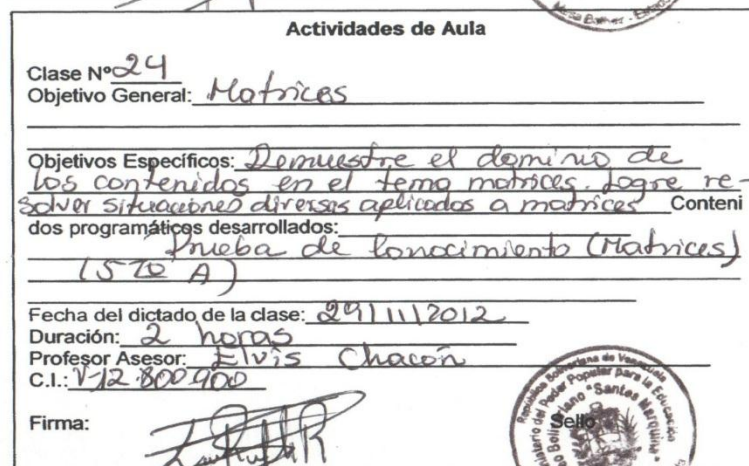 Mesa Bolívar - Estado
Actividades de Aula
Clase N° 24
Objetivo General: Matrices
Objetivos Específicos: Demuestre el dominio de
los contenidos en el tema matrices. Logre re-
solver situaciones diversas aplicados a matrices Conteni
dos programáticos desarrollados:
Prueba de Conocimiento (Matrices)
(5to A)
Fecha del dictado de la clase: 29/11/2012
Duración: 2 horas
Profesor Asesor: Elvis Chacón
C.I.: V-12.800.900
Firma:
Sello
República Bolivariana de Venezuela
Poder Popular para la Educación
"Santos Marquina"